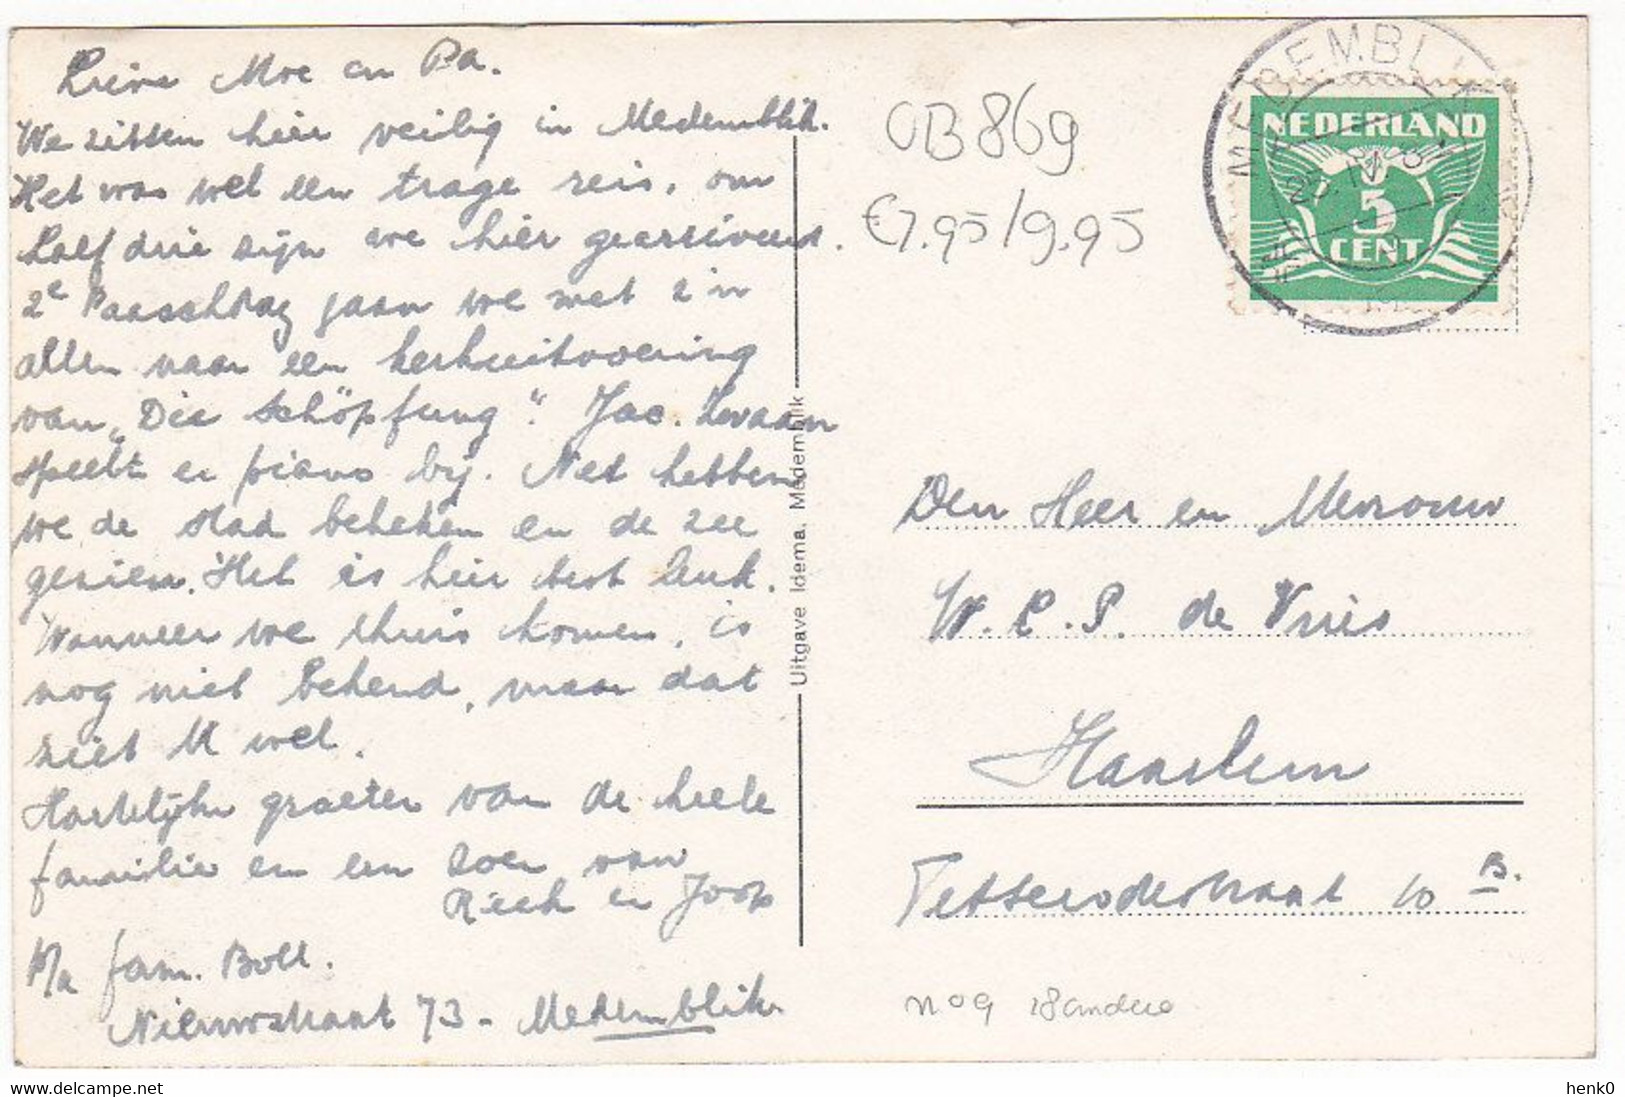 Lieve Moe en Pa.
We zitten hier veilig in Medemblik.
Het was wel een trage reis, om
half drie zijn we hier gearriveerd.
2e Paaschdag gaan we met z'n
allen naar een kerkuitvoering
van „Die Schöpfung". Jac. Zwaan
speelt er piano bij. Net hebben
we de stad bekeken en de zee
gezien. Het is hier best leuk.
Wanneer we thuis komen, is
nog niet bekend, maar dat
ziet U wel.
Hartelijke groeten van de heele
familie en een zoen van
Riek en Joop
p/a fam. Boll.
Nieuwstraat 73 - Medemblik
Uitgave Idema. Medemblik
OB869
€7.95/9.95
MEDEMBLIK
NEDERLAND
5
CENT
Den Heer en Mevrouw
W. L. P. de Vries
Haarlem
Tetterodestraat 10 B.
nog 18 andere
henk0
delcampe.net